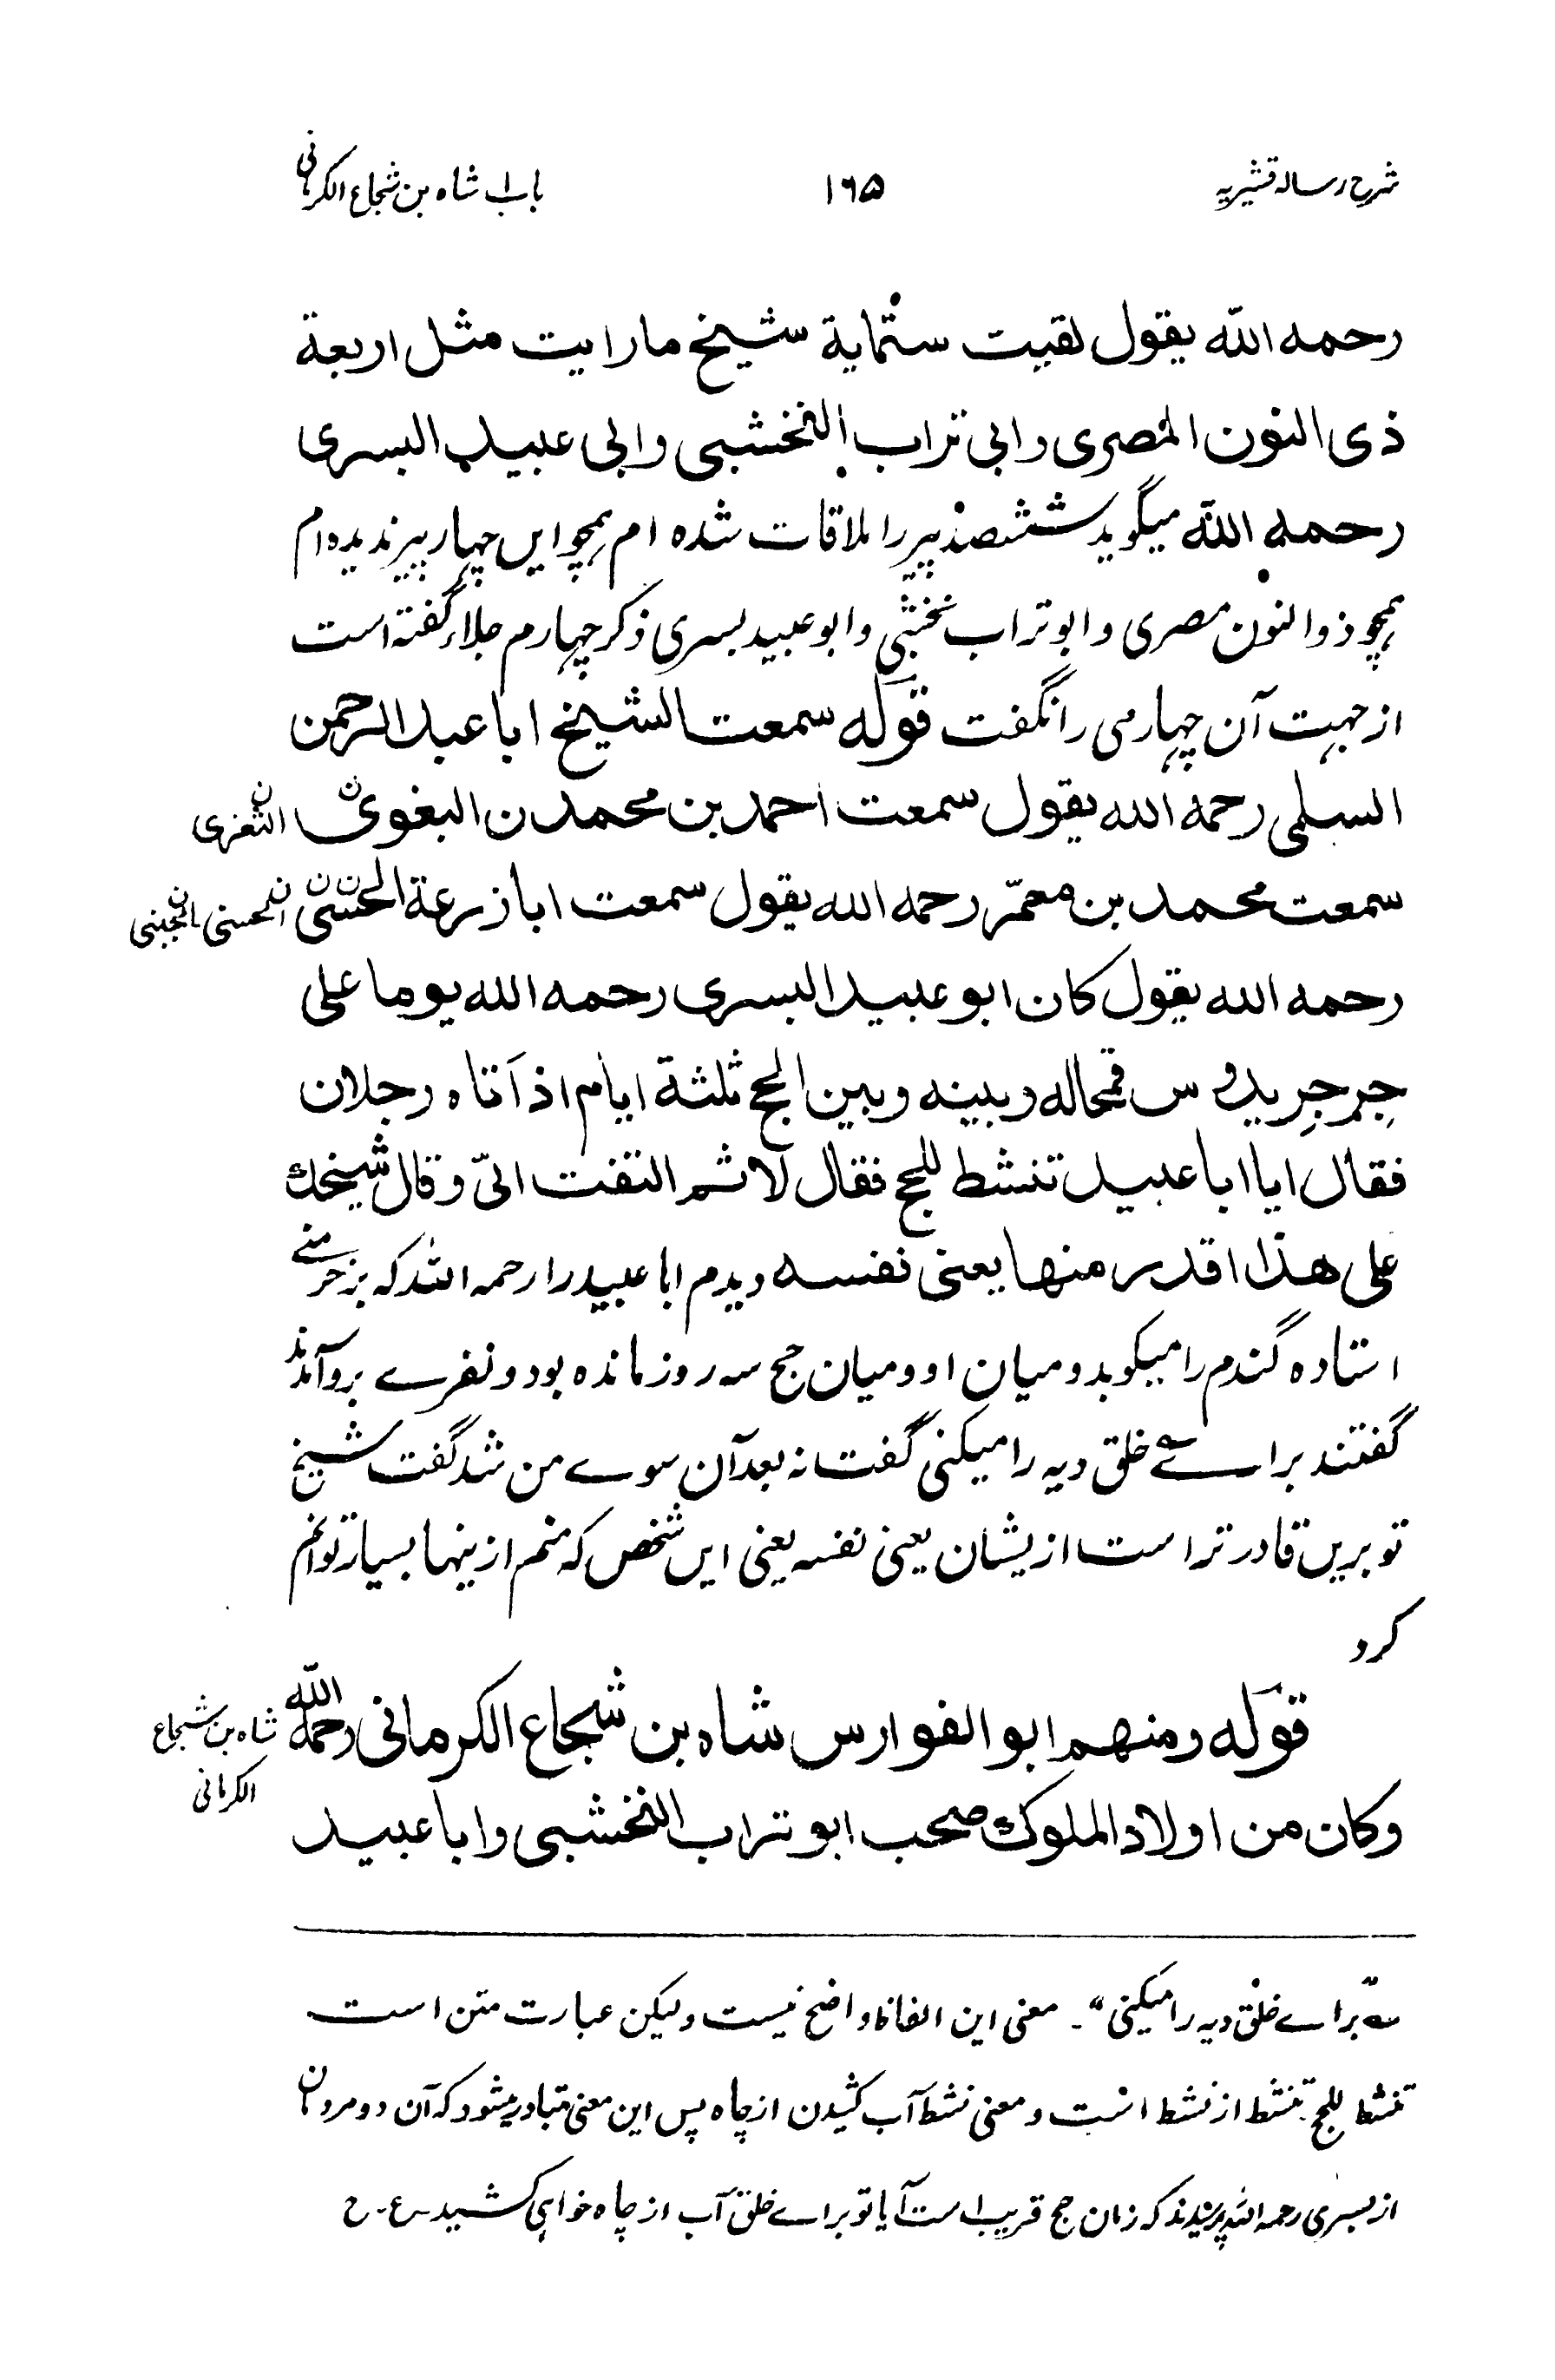 شرح رساله قشیریه ۱۶۵ باب شاه بن شجاع الکرمانی
رحمه الله یقول لقیت ستمایة شیخ ما رایت مثل اربعة
ذی النون المصری وابی تراب النخشبی وابی عبید البسری
رحمه الله میگوید ششصد پیر را ملاقات شده ام همچو ایں چهار پیر ندیده ام
همچو ذوالنون مصری و ابو تراب نخشبی و ابو عبید بسری ذکر چهارم جلاء گفته است
از جهت آن چهارمی را نگفت قوله سمعت الشیخ ابا عبد الرحمن
السلمی رحمه الله یقول سمعت احمد بن محمد ن البغوی ن الثغری
سمعت محمد بن معمّر رحمه الله یقول سمعت ابا زرعة الحسنی ن الحسنی ن الجنبی
رحمه الله یقول کان ابو عبید البسری رحمه الله یوما علی
جِرجِر یدوس قمحا له و بینه و بین الحج ثلثة ایام اذ اتاه رجلان
فقال ایا ابا عبید تنشط للحج فقال لا ثم التفت الیّ وقال شیخک
علی هذا اقدر منها یعنی نفسه دیدم ابا عبید را رحمه الله که بر خرمنے
استاده گندم را میکوبد و میان او و میان حج سه روز مانده بود دو نفرے برو آمدند
گفتند براے خلق دیه را میکنی گفت نه بعد آن سوے من شد گفت شیخ
تو بریں قادر تر است ازیشان یعنی نفسه یعنی ایں شخص که منم ازینها بسیار توانم
کرد
قوله ومنهم ابو الفوارس شاه بن شجاع الکرمانی رحمه الله شاه بن شجاع
الکرمانی
وکان من اولاد الملوک صحب ابو تراب النخشبی وابا عبید
؎ "براے خلق دیه را میکنی"۔ معنی این الفاظ واضح نیست ولیکن عبارت متن است
تنشط للحج تنشط از نشط است و معنی نشط آب کشیدن از چاه پس این معنی متبادر میشود که آن دو مردان
از بسری رحمه الله پرسیدند که زمان حج قریب است آیا تو براے خلق آب از چاه خواهی کشید۔ ع۔ ح